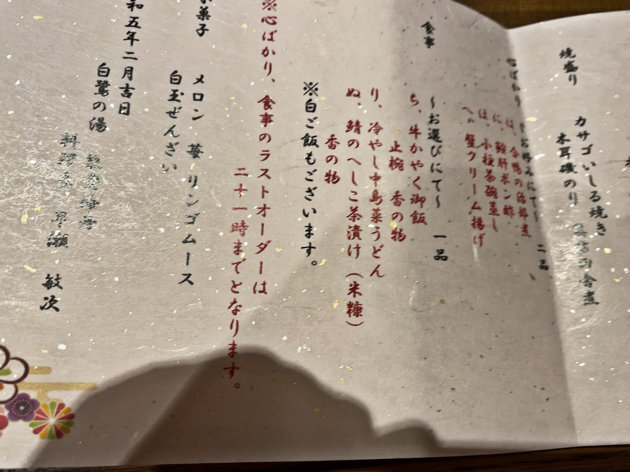 焼盛り カサゴいしる焼き
木耳磯のり
心ばかり ～お好みにて～ 二品
は、合鴨の治部煮
に、鮟肝ポン酢
ほ、小柱茶碗蒸し
へ、蟹クリーム揚げ
食事 ～お選びにて～ 一品
ち、牛かやく御飯
止椀 香の物
り、冷やし中島菜うどん
ぬ、鯖のへしこ茶漬け（米糠）
香の物
※白ご飯もございます。
※心ばかり、食事のラストオーダーは
二十一時までとなります。
菓子 メロン 苺 リンゴムース
白玉ぜんざい
和五年二月吉日
白鷺の湯
料理長
敏次